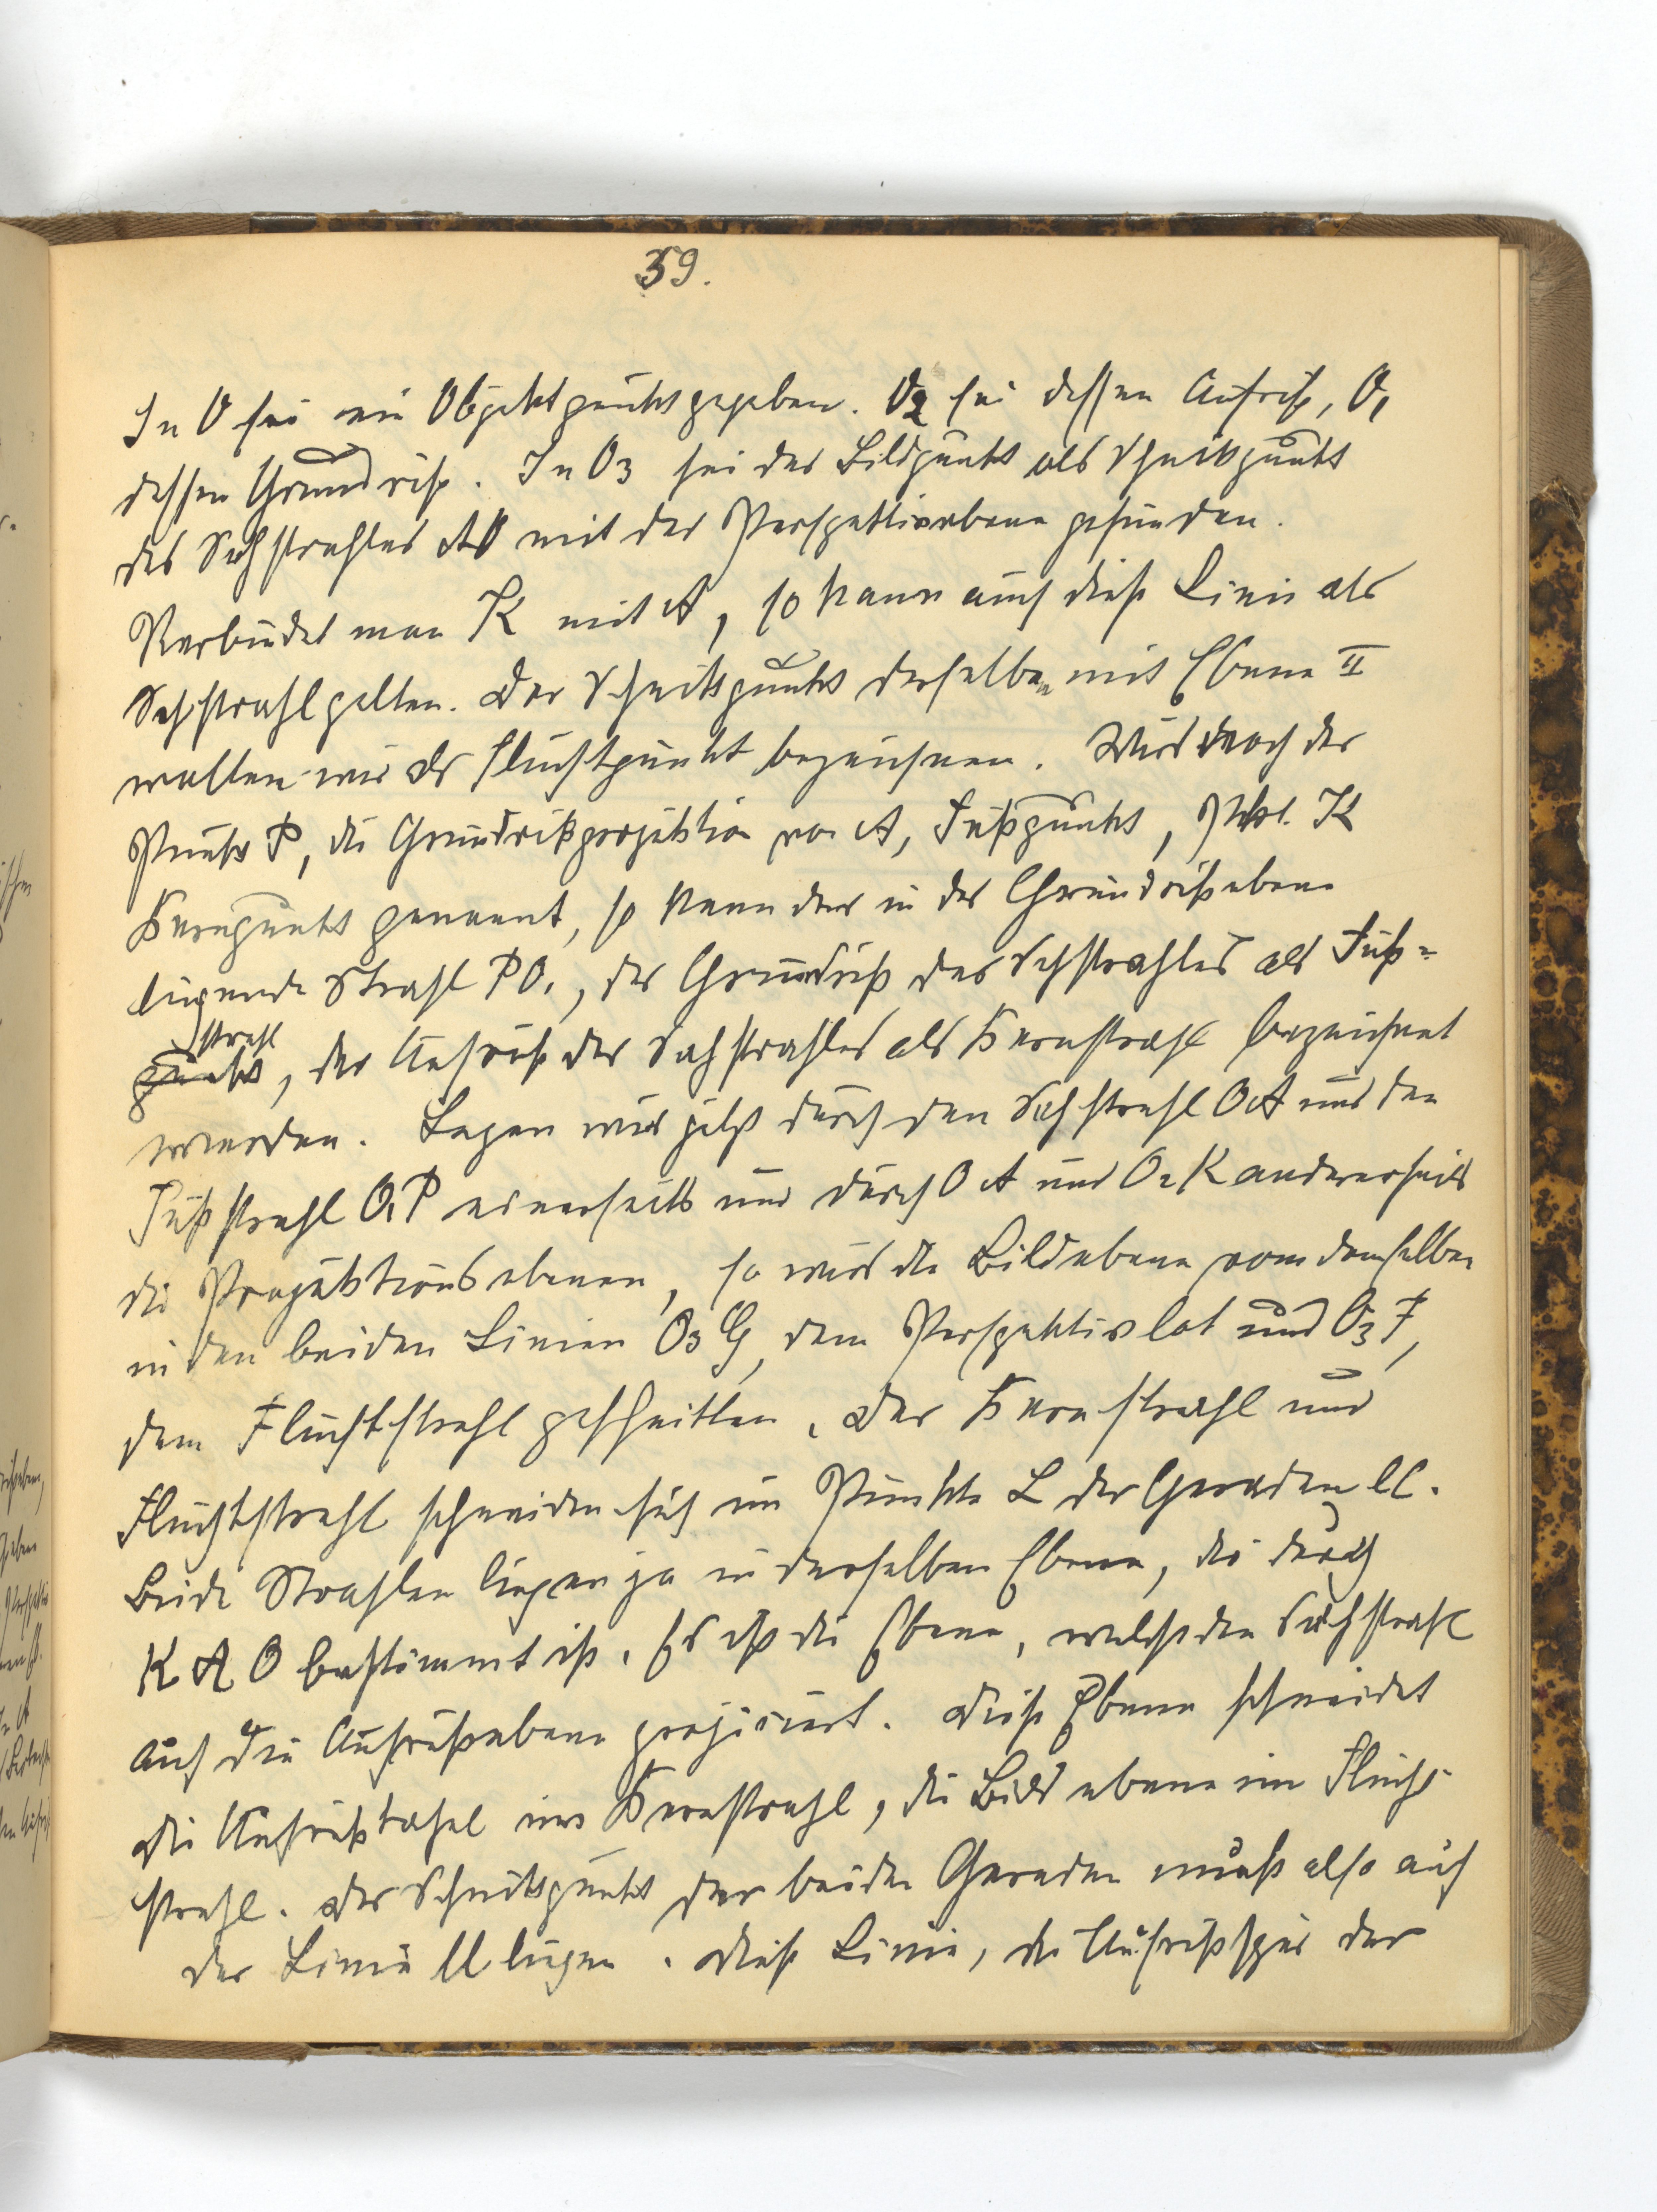 39.
In O sei ein Objektpunkt gegeben. O2 sei dessen Aufriß, O1
dessen Grundriß. In O3 sei der Bildpunkt als Schnittpunkt
des Sehstrahles AO mit der Perspektivebene gefunden.
Verbindet man K mit A, so kann auch diese Linie als
Sehstrahl gelten. Der Schnittpunkt derselben mit Ebene II
wollen wir als Fluchtpunkt bezeichnen. Wird noch der
Punkt P, die Grundrißprojektion von A, Fußpunkt, Pkt. K
Kernpunkt genannt, so kann der in der Grundrißebene
liegende Strahl PO1, der Grundriß des Sehstrahles als Fuß-
strahl
punkt, der Aufriß des Sehstrahles als Kernstrahl bezeichnet
werden. Legen wir jetzt durch den Sehstrahl OA und den
Fußstrahl O1P einerseits und durch OA und O2K andererseits
die Projektionsebenen, so wird die Bildebene von denselben
in den beiden Linien O3G, dem Perspektivlot und O3F,
dem Fluchtstrahl geschnitten. Der Kernstrahl und
Fluchtstrahl schneiden sich im Punkte L der Geraden ll.
Beide Strahlen liegen ja in derselben Ebene, die durch
K A O bestimmt ist. Es ist die Ebene, welche den Sehstrahl
auf die Aufrißebene projiciert. Diese Ebene schneidet
die Aufrißtafel im Kernstrahl, die Bildebene im Flucht-
strahl. Der Schnittpunkt der beiden Geraden muß also auf
der Linie ll liegen. Diese Linie, die Aufrißspur der